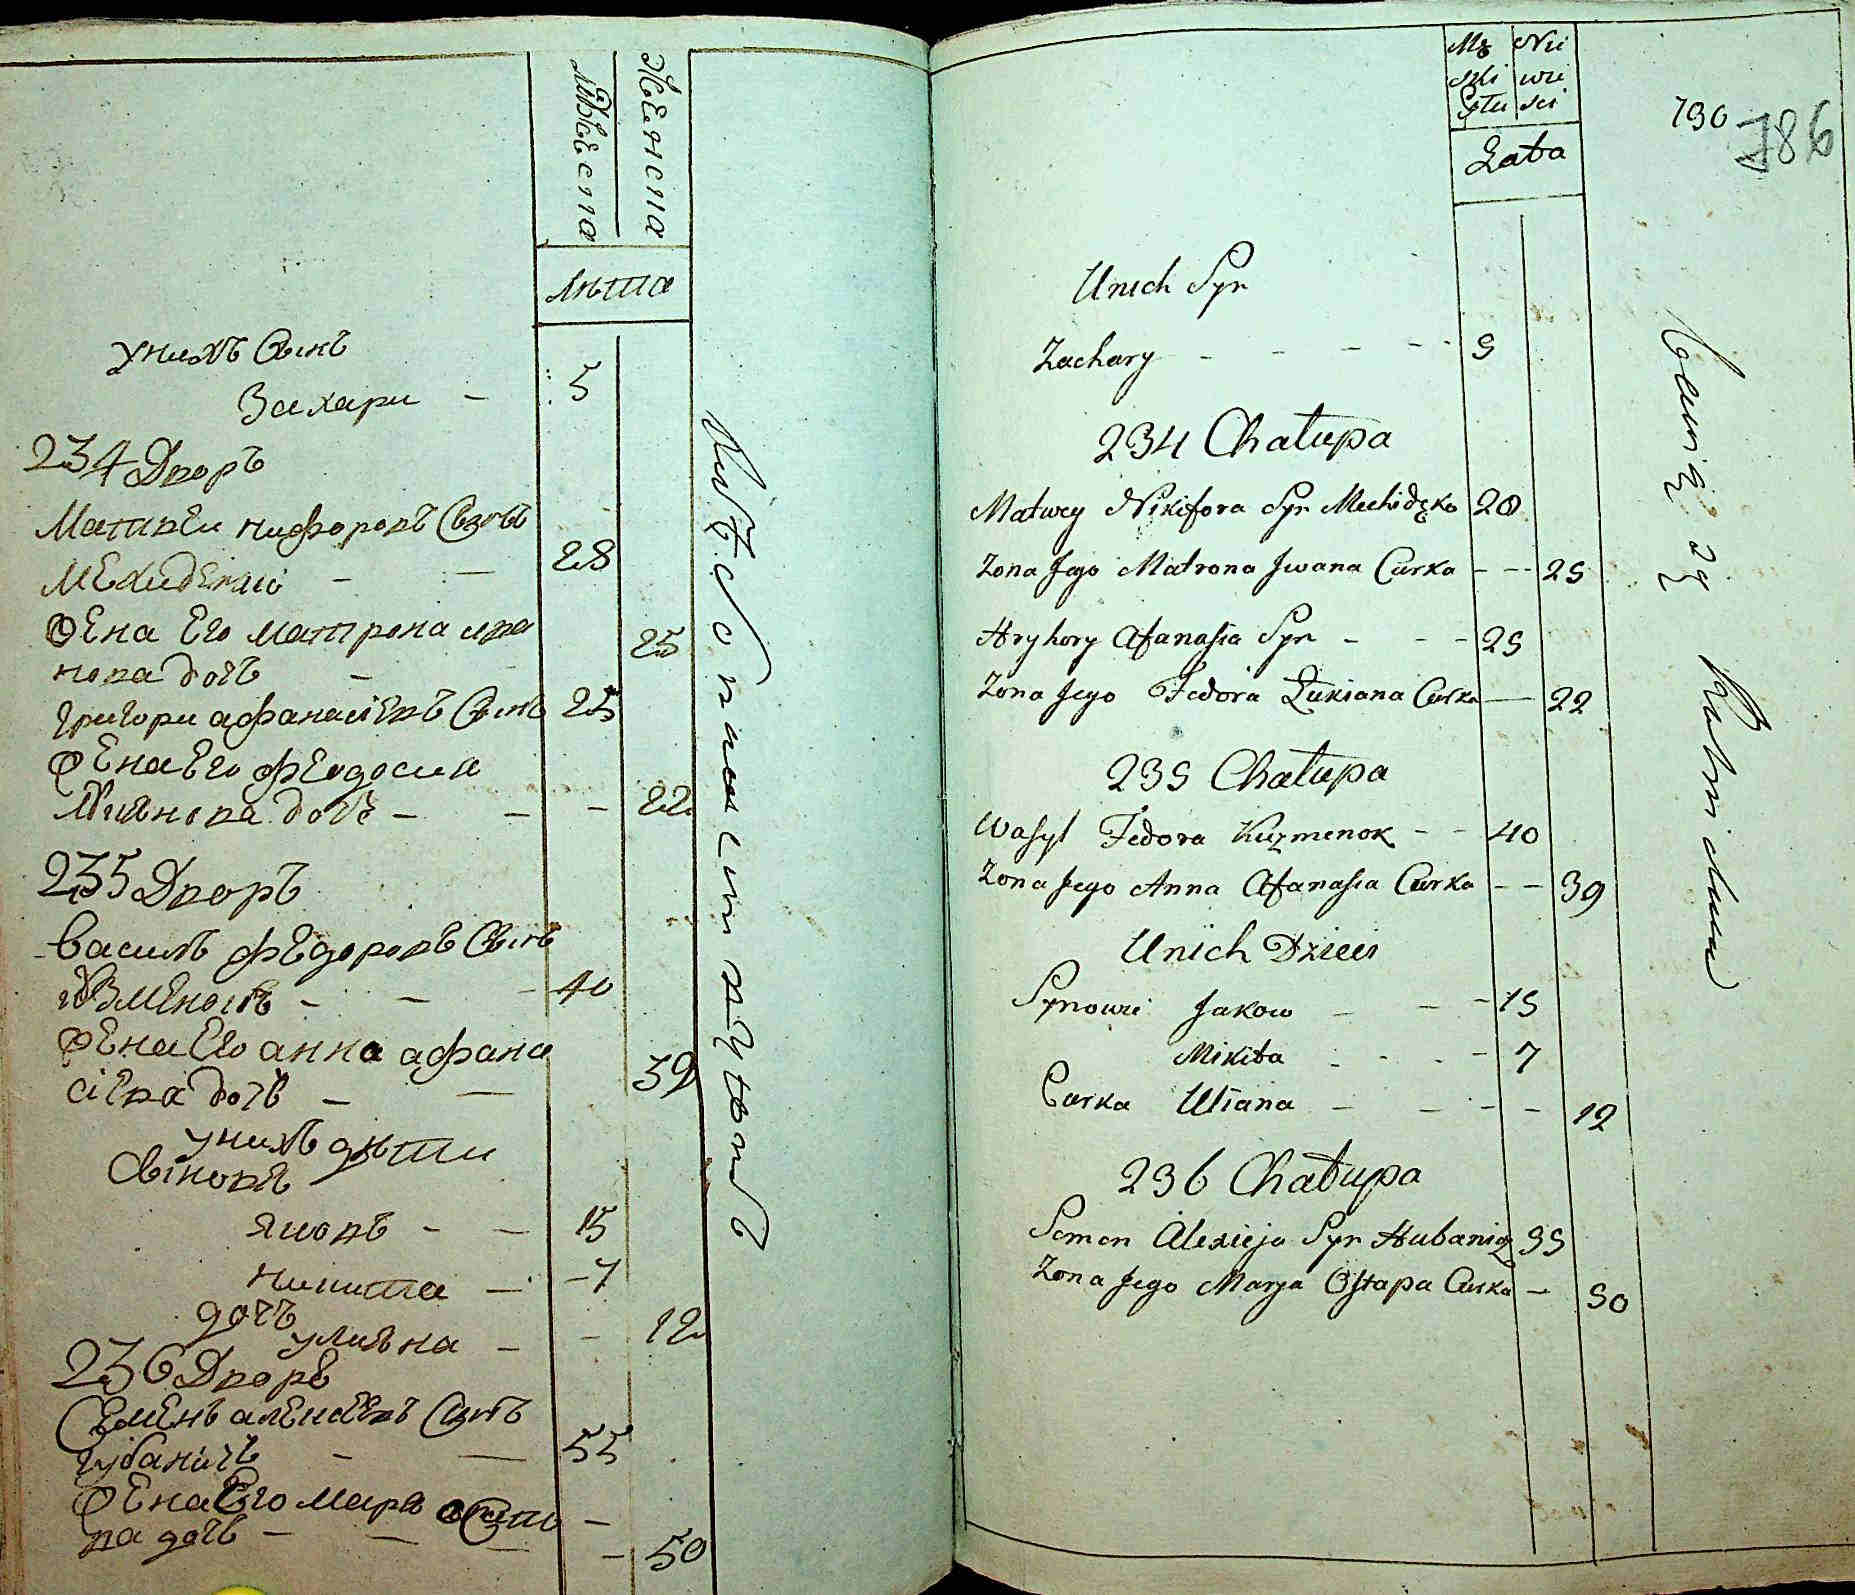 Мужеска
Женска
Лѣта
унихъ Сынъ
Захари – 5
234 Дворъ
Матвеи нифоровъ Сынъ
Мехиденко – – 28
Жена Его матрона ива
нова дочь – 25
григори афанасіевъ Сынъ 25
Жена Его феодосия
лукянова дочь – – – 22
235 Дворъ
Василь Федоровъ Сынъ
кузменокъ – – – 40
Жена Его анна афана
сіева дочь – – 39
унихъ дѣти
Сыновъя
яковъ – – 15
никита – – 7
дочъ
улияна – – 12
236 Дворъ
Семенъ алексеевъ Сынъ
губаничъ – – 55
Жена Его маря остапо
ва дочь – – – 50
Mę Nie
ski wie
Płci sci
Lata
190
786
Unich Syn
Zachary - - - - - 5
234 Chałupa
Matwey Nikifora Syn Mechidęko 28
Zona Jego Matrona Jwana Curka - - - 25
Hryhory Afanasia Syn - - - 25
Zona Jego Fedora Łukiana Curka — 22
235 Chałupa
Wasyl Fedora Kuzmenok - - 40
Zona Jego Anna Afanasia Curka - - 39
Unich Dzieci
Synowie Jakow - - - 15
Mikita - - - - 7
Curka Uliana - - - - 12
236 Chałupa
Semen Alexieja Syn Hubanicz 55
Zona Jego Marya Ostapa Curka - 50